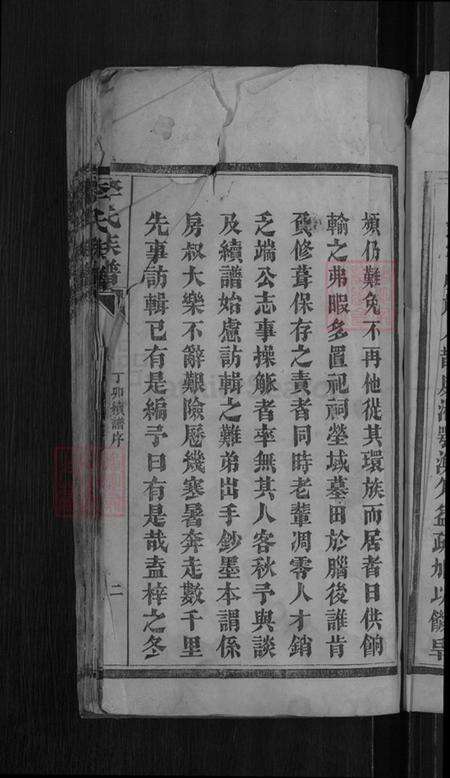 頻仍難免不再他從其環族而居者日供餉
輸之弗暇多置祀祠塋域墓田於腦後誰肯
負修葺保存之責者同時老輩凋零人才銷
乏端公志事操觚者率無其人客秋予與談
及續譜始慮訪輯之難弟出手鈔墨本謂係
房叔大樂不辭艱險歷幾寒暑奔走數千里
先事訪輯已有是編予曰有是哉盍梓之冬
李氏族譜
丁卯續譜序
二